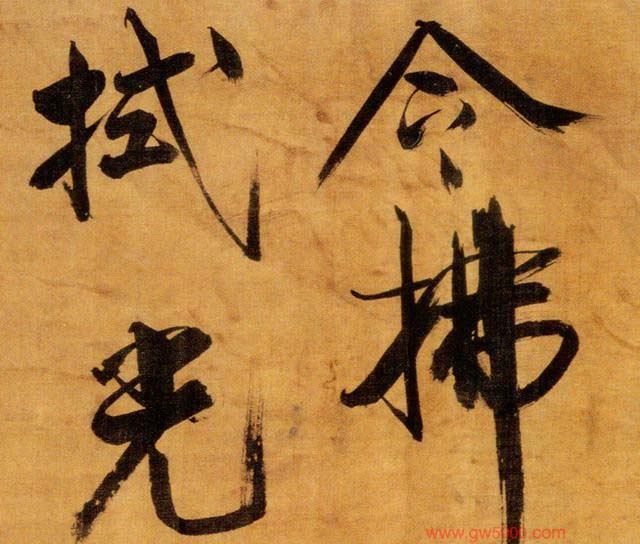 今拂
拭光
www.gw5000.com